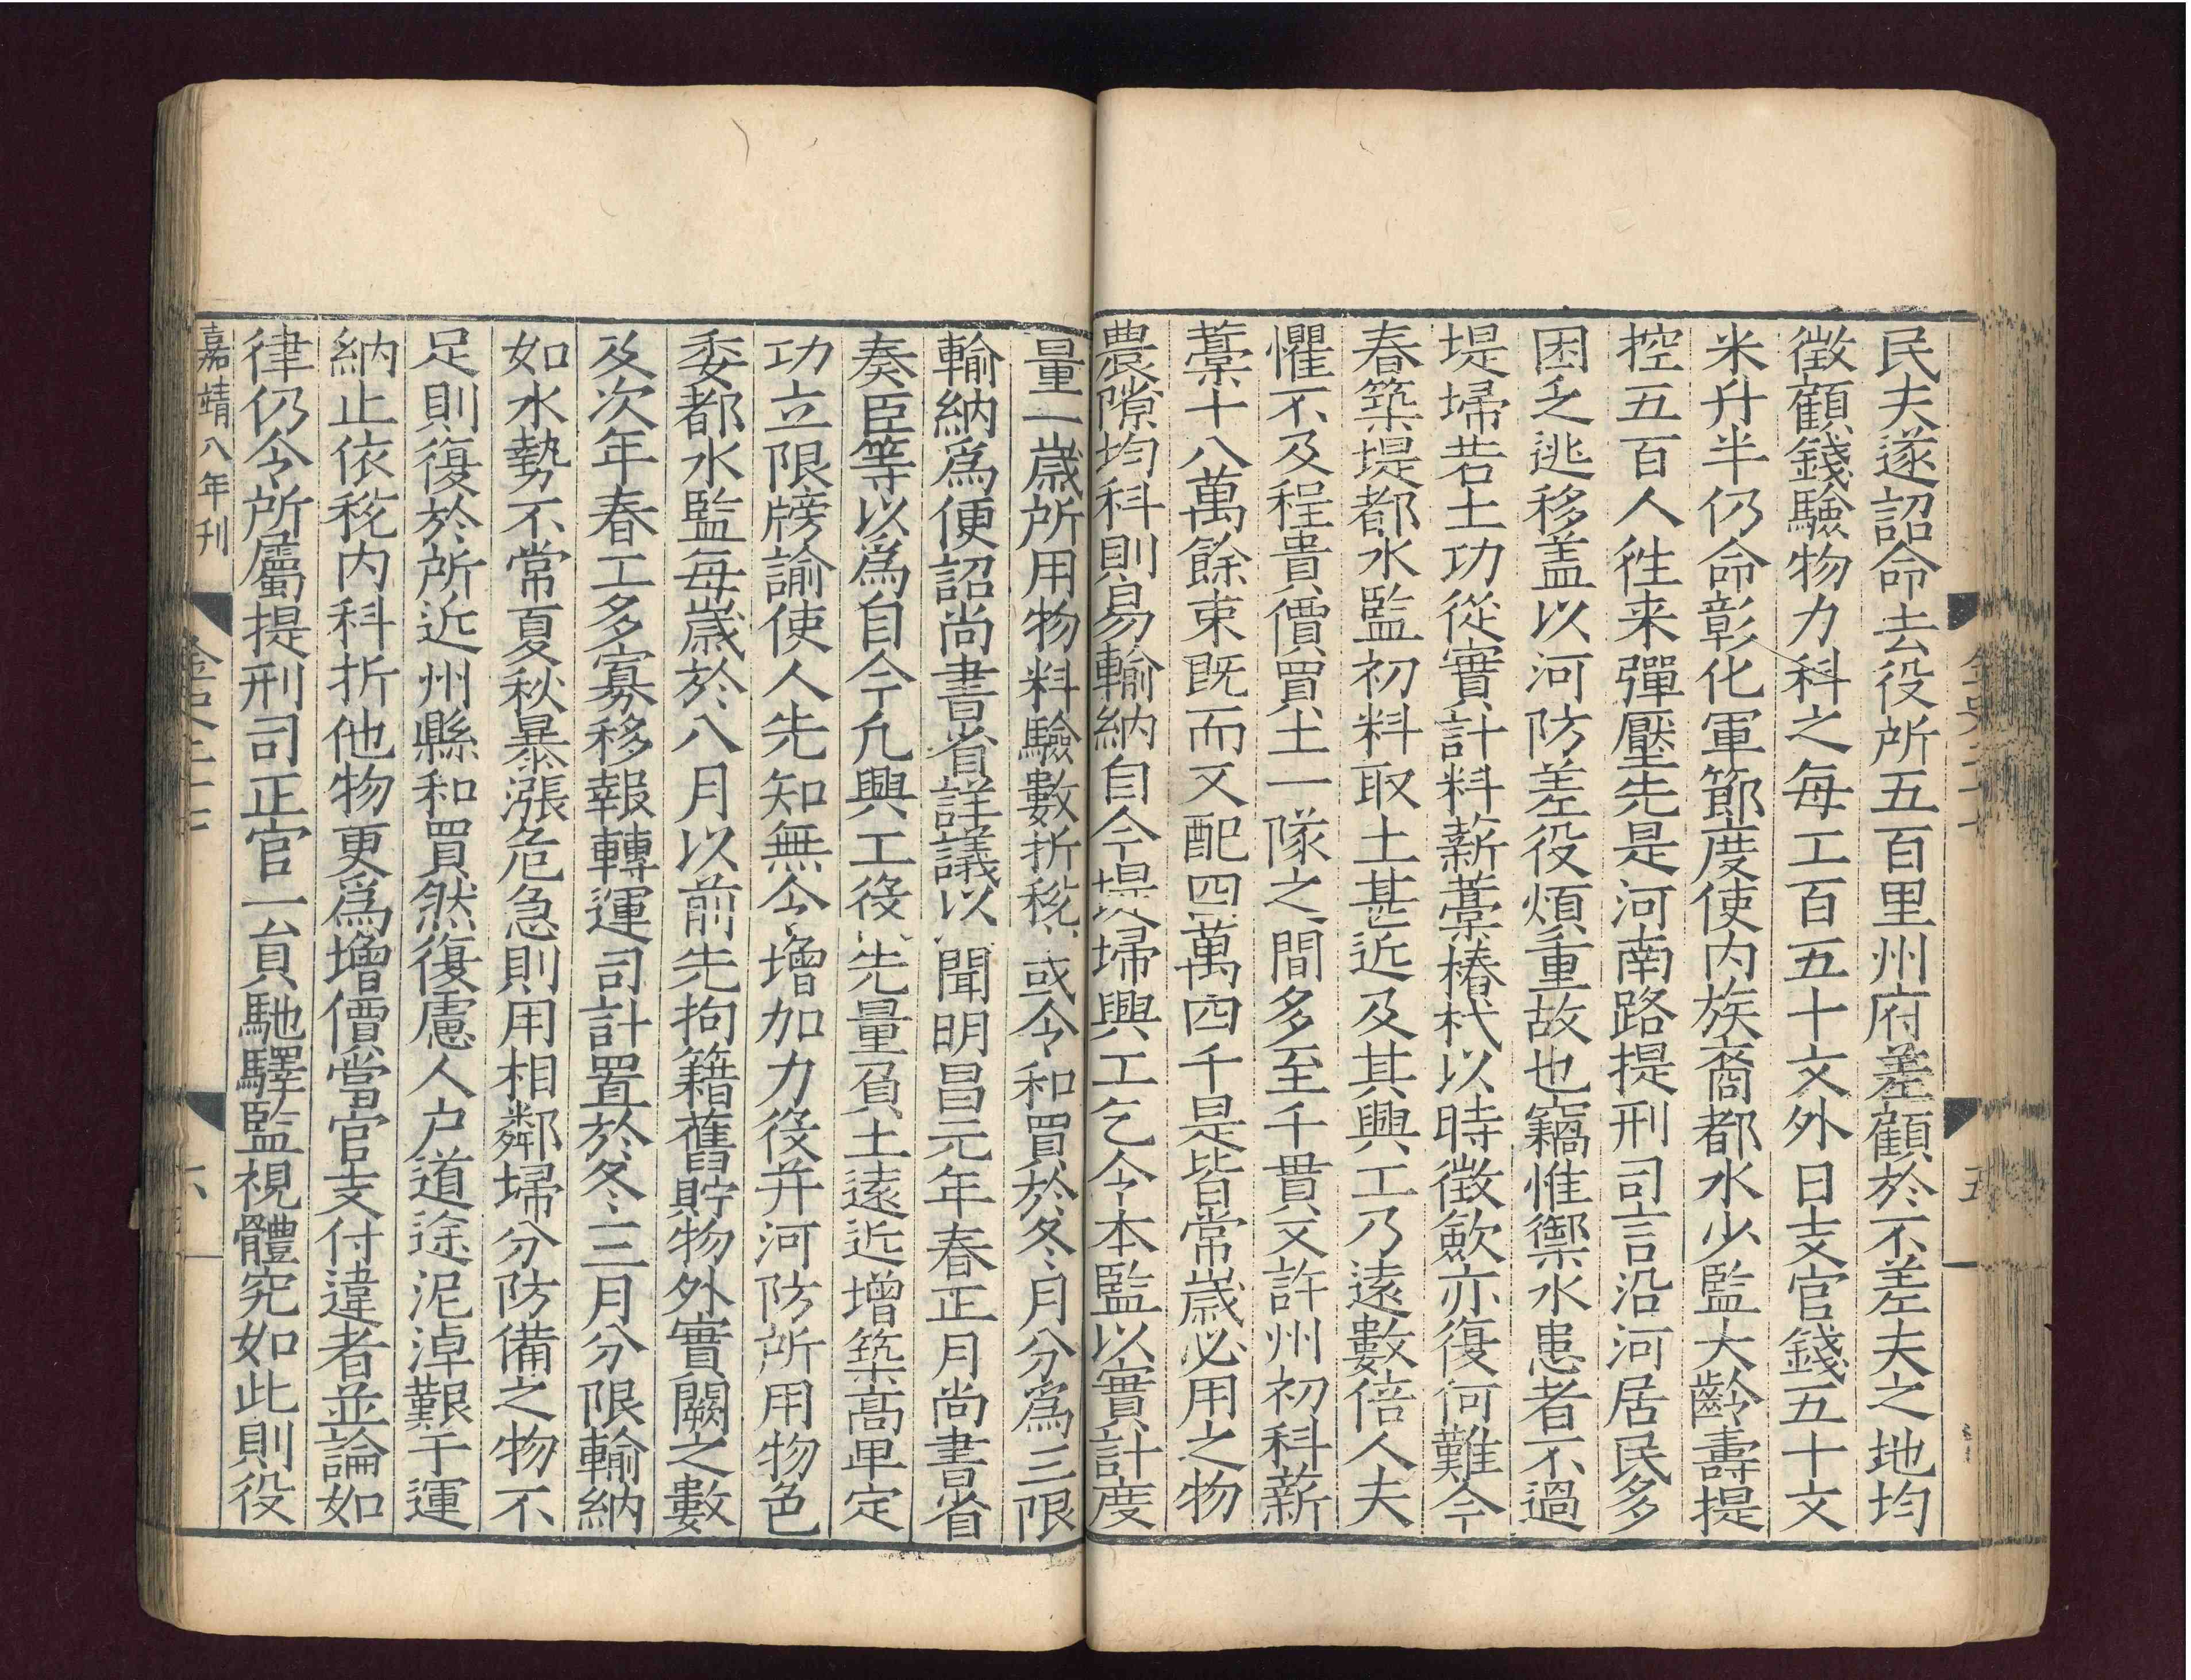 民夫遂詔命去役所五百里州府差顧於不差夫之地均
徵顧錢驗物力科之每工百五十文外日支官錢五十文
米升半仍命彰化軍節度使内族裔都水少監大齡壽提
控五百人徃来彈壓先是河南路提刑司言沿河居民多
困乏逃移盖以河防差役煩重故也竊惟禦水患者不過
堤埽若土功從實計料薪藁樁杙以時徵歛亦復何難今
春築堤都水監初料取土甚近及其興工乃遠數倍人夫
懼不及程貴價買土一隊之間多至千貫又許州初科薪
藁十八萬餘束既而又配四萬四千是皆常歲必用之物
農隙均科則易輸納自今堤埽興工乞令本監以實計度
量一歲所用物料驗數折稅或令和買於冬月分為三限
輸納為便詔尚書省詳議以聞明昌元年春正月尚書省
奏臣等以為自今凢興工役先量負土遠近增築高卑定
功立限牓諭使人先知無令增加力役并河防所用物色
委都水監每歲於八月以前先拘籍舊貯物外實闕之數
及次年春工多寡移報轉運司計置於冬三月分限輸納
如水勢不常夏秋暴漲危急則用相鄰埽分防備之物不
足則復於所近州縣和買然復慮人户道途泥淖艱于運
納止依稅内科折他物更為增價當官支付違者並論如
律仍令所屬提刑司正官一員馳驛監視體究如此則役
嘉靖八年刊
金史二十七
六